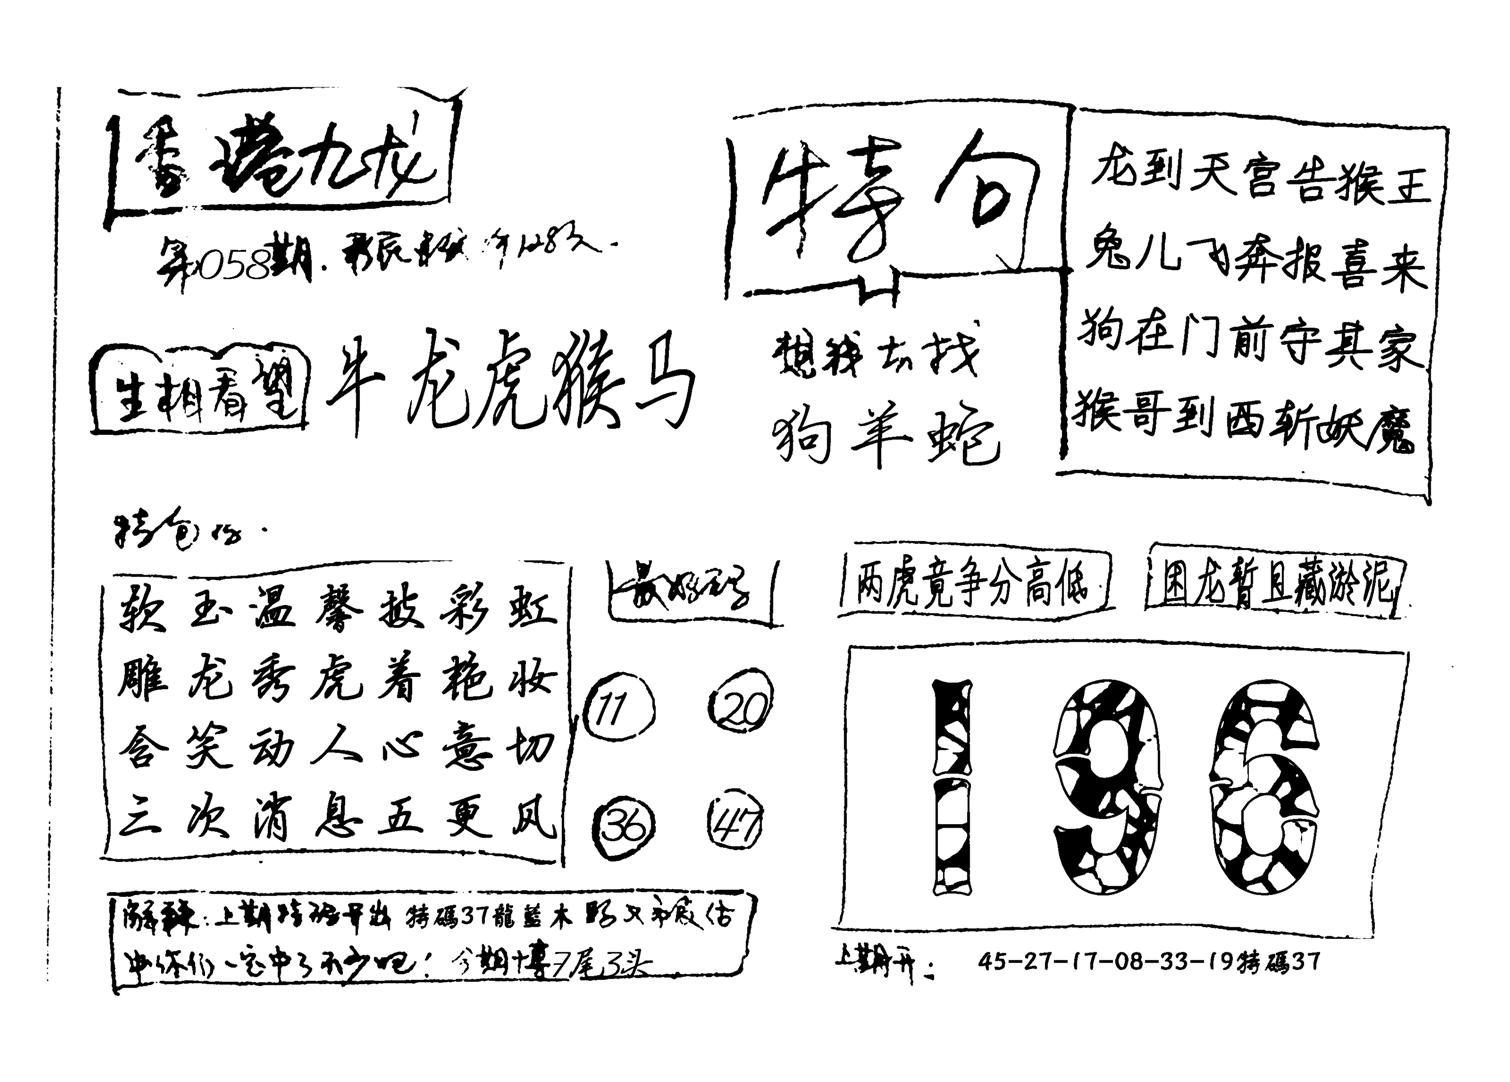 香港九龙
第058期.
特句
龙到天宫告猴王
兔儿飞奔报喜来
狗在门前守其家
猴哥到西斩妖魔
生相看望
牛龙虎猴马
想我去找
狗羊蛇
特包
软玉温馨披彩虹
雕龙秀虎着艳妆
含笑动人心意切
三次消息五更风
最好码
11 20
36 47
两虎竞争分高低
困龙暂且藏淤泥
196
解释:上期特码开出 特碼37龍藍木
中你们一定中了不少吧! 今期博7尾3头
上期开: 45-27-17-08-33-19特碼37